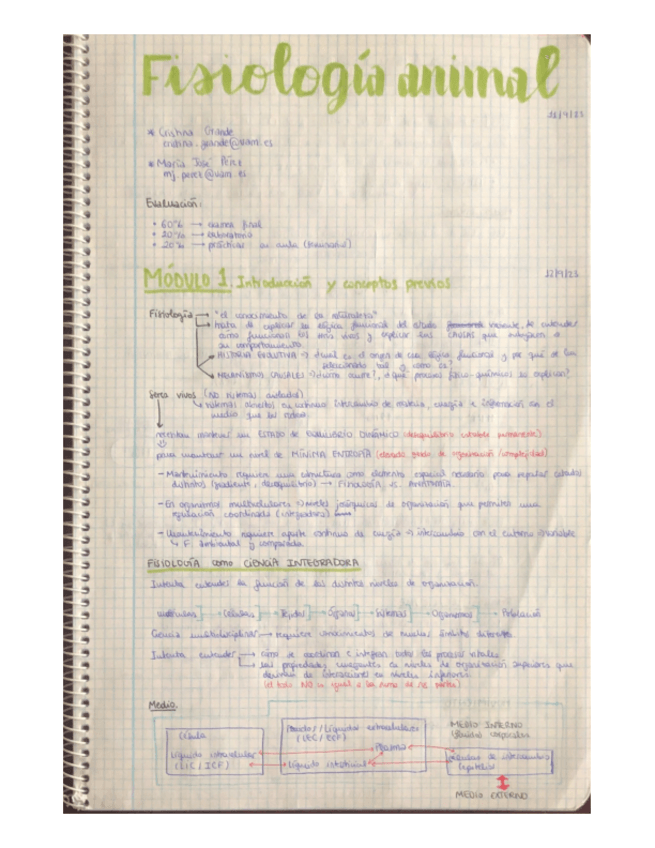 Fisiología animal
* Cristina Grande
cristina.grande@uam.es
* María José Pérez
mj.perez@uam.es
Evaluación:
• 60% → examen final
• 20% → laboratorio
• 20% → prácticas en aula (seminario)
MÓDULO 1. Introducción y conceptos previos
12/9/23
Fisiología → "el conocimiento de la naturaleza"
trata de explicar la lógica funcional del viviente, de entender
cómo funcionan los seres vivos y explicar las CAUSAS que subyacen a
su comportamiento.
HISTORIA EVOLUTIVA → ¿cuál es el origen de esa lógica funcional y por qué se ha
seleccionado tal y como es?
MECANISMOS CAUSALES → ¿cómo ocurre?, ¿qué procesos físico-químicos lo explican?
Seres vivos (no sistemas aislados)
↳ sistemas abiertos en continuo intercambio de materia, energía e información en el
medio que les rodea
intentan mantener un ESTADO de EQUILIBRIO DINÁMICO (desequilibrio estable permanente)
para mantener un nivel de MÍNIMA ENTROPÍA (elevado grado de organización/complejidad)
- Mantenimiento requiere una estructura como elemento espacial necesario para separar estados
distintos (gradiente, desequilibrio) → FISIOLOGÍA vs. ANATOMÍA.
- En organismos multicelulares → niveles jerárquicos de organización que permiten una
regulación coordinada (integradora)
- Mantenimiento requiere aporte continuo de energía → intercambio con el entorno variable
↳ F. ambiental y comparada.
FISIOLOGÍA como CIENCIA INTEGRADORA
Intenta entender la función de los distintos niveles de organización.
Células Tejidos Órganos Sistemas Organismos Población
Ciencia multidisciplinar → requiere conocimientos de muchos ámbitos diferentes.
Intenta entender → cómo se coordinan e integran todos los procesos vitales.
las propiedades emergentes en niveles de organización superiores que
derivan de interacciones en niveles inferiores.
(el todo NO es igual a la suma de las partes)
Medio.
Célula
Líquido intracelular
(LIC / ICF)
Líquidos extracelulares
(LEC / ECF)
Plasma
Líquido intersticial
MEDIO INTERNO
fluidos corporales
de intercambio
MEDIO EXTERNO